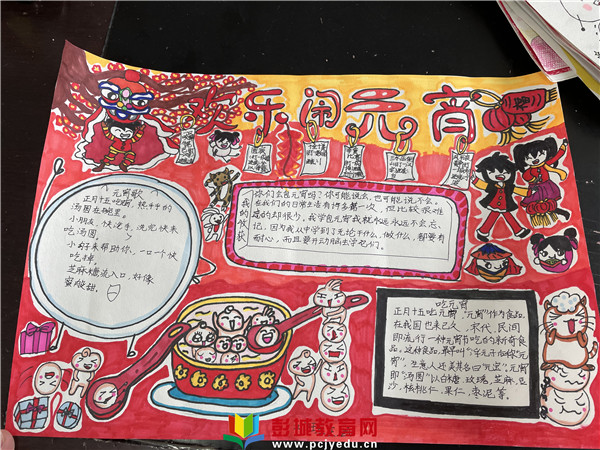 欢乐闹元宵
元宵歌
正月十五吃汤圆，热乎乎的
汤圆在碗里。
小朋友，快洗手，洗完快来
吃汤圆
小勺来帮助你，一口一个快
吃掉。
芝麻糖流入口，好像
蜜般甜。
我的收获
你们会包元宵吗？你可能说会，也可能说不会。
在我们的日常生活有许多第一次，但比较艰难
的却很少，我学包元宵我就永远永远不会忘
记，因为从中学到了无论干什么，做什么，都要有
耐心，而且要开动脑筋学把们。
吃元宵
正月十五吃元宵，“元宵”作为食品，
在我国也来已久，宋代，民间
即流行一种元宵节吃的新奇食
品。这种食品，最早叫“浮元子”后称“元
宵”，生意人还美其名曰“元宝”。元宵
即“汤圆”以白糖、玫瑰、芝麻、豆
沙、核桃仁、果仁、枣泥等。
彭城教育网
www.pcjyedu.cn